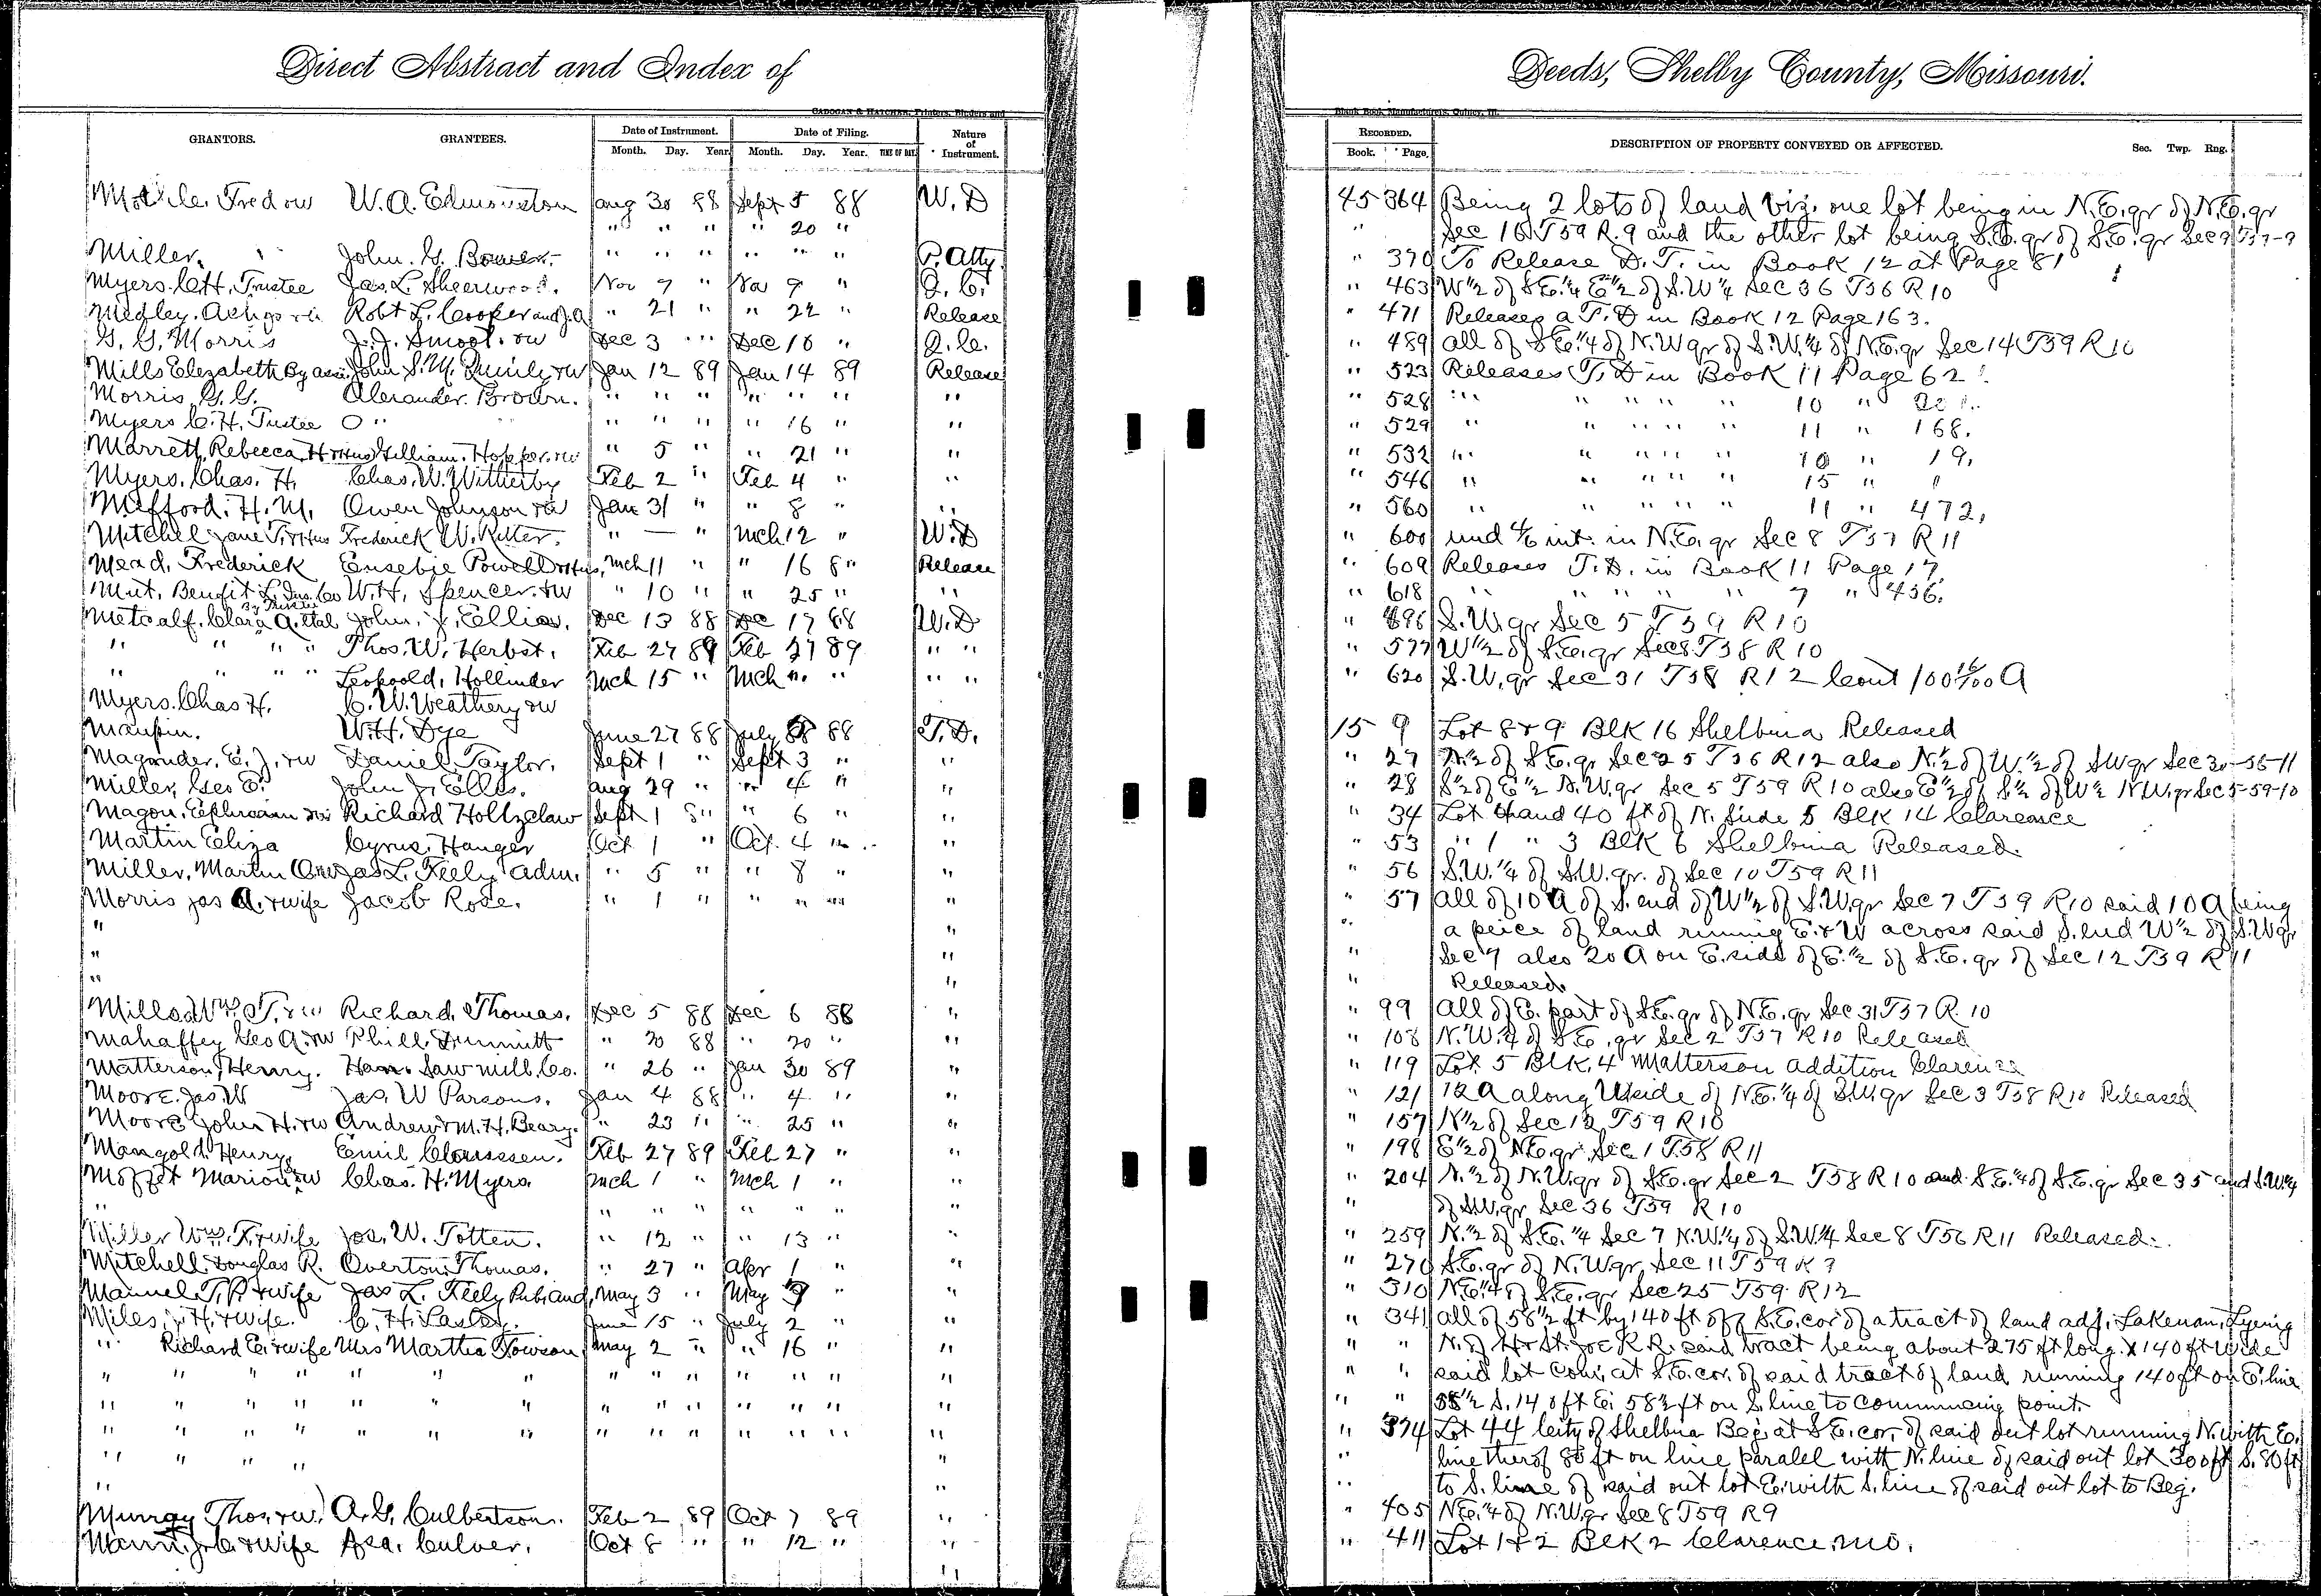 Direct Abstract and Index of
Deeds, Shelby County, Missouri.
CADOGAN & HATCHER, Printers, Binders and
Blank Book Manufacturers, Quincy, Ill.
GRANTORS. GRANTEES. Date of Instrument. Date of Filing. Nature of Instrument.
Month. Day. Year. Month. Day. Year. TIME OF DAY
RECORDED. DESCRIPTION OF PROPERTY CONVEYED OR AFFECTED. Sec. Twp. Rng.
Book. Page.
Fred &W W. A. Edmonston Aug 30 88 Sept 5 88 W. D 45 364 Being 2 lots of land viz. one lot being in N.E. qr of N.E. qr
" " " " 20 " " Sec 16 T59 R. 9 and the other lot being S.E. qr of S.E. qr Sec 9
Miller. John. G. " " " " " " P. Atty " 370 To Release D. T. in Book 12 at Page 81
Myers. C.H. Trustee Jas. L. Sheerwood. Nov 9 " Nov 9 " Q. C. " 463 W½ of S.E.¼ E½ of S.W¼ Sec 36 T56 R10
Medley. Robt L. Cooper and " 21 " " 22 " Release " 471 Releases a T. D in Book 12 Page 163.
G. G. Morris J. J. Smoot. &W Dec 3 " " Dec 10 " Q. C. " 489 all of S.E.¼ of N.W qr of S.W.¼ of N.E. qr Sec 14 T59 R10
Mills Elezabeth By John S. M. &W Jan 12 89 Jan 14 89 Release " 523 Releases T. D in Book 11 Page 62
Morris G. G. Alexander. Brown. " " " " " " " " 528 " " " " " 10 "
Myers C. H. Tustee " " " " " 16 " " " 529 " " " " " 11 " 168.
Marrett, Rebecca. H &Hus William. Hopper. &W " 5 " " 21 " " " 532 " " " " " 10 " 19.
Myers. Chas. H. Chas. W. Witherby Feb 2 " Feb 4 " " " 546 " " " " " 15 "
Mefford. H. M. Owen Johnson &W Jan 31 " " 8 " " " 560 " " " " " 11 " 472.
Mitchel Jane T. &Hus Frederick W. Ritter. " — " Mch 12 " W. D " 600 und in N.E. qr Sec 8 T57 R11
Mead. Frederick Eusebie Powell &Hus. Mch 11 " " 16 8" Release " 609 Releases T. D. in Book 11 Page 17.
Mut. Benefit L. Ins. Co W. H. Spencer. &W " 10 " " 25 " " " 618 " " " " " 7 " 456.
Metcalf. Clara A. etal By Trustee John. J. Ellis. Dec 13 88 Dec 17 88 W. D " 496 S. W. qr Sec 5 T59 R10
" " " " Thos. W. Herbst. Feb 27 89 Feb 27 89 " " " 577 W½ of S.E. qr Sec 8 T58 R10
" " " " Leopoold. Hollinder Mch 15 " Mch " " " " " 620 S. W. qr Sec 31 T58 R12 Cont 100 A
Myers. Chas H. C. W. Weathery &W
Maupin. W. H. Dye June 27 88 July 88 T. D. 15 9 Lot 8 & 9 BLK 16 Shelbina Released
Magruder, E. J. &W Daniel Taylor. Sept 1 " Sept 3 " " " 27 N.½ of S.E. qr Sec 25 T56 R12 also N.½ of W.½ of SW qr Sec 30-56-11
Miller, Geo E. John J. Elles. Aug 29 " " 4 " " " 28 S½ of E½ N.W. qr Sec 5 T59 R10 also E½ of S½ of W½ N.W. qr Sec 5-59-10
Magon. Ephroam Richard Holtzclaw Sept 1 8" " 6 " " " 34 Lot 4 and 40 ft of N. Side 5 BLK 14 Clarence
Martin Eliza Cyrus. Hanger Oct 1 " Oct. 4 " " " 53 " 1 " 3 BLK 6 Shelbina Released.
Miller, Martin Jas L. Feely Adm. " 5 " " 8 " " " 56 S.W.¼ of S.W. qr. of Sec 10 T59 R11
Morris Jas A. &wife Jacob Rose. " 1 " " " " " " 57 all of 10 A of S. end of W½ of S.W. qr Sec 7 T59 R10 said 10 A being
" " " a peice of land running E. & W across said S. end W½ of S.W qr
" " " Sec 7 also 20 A on E. side of E.½ of S.E. qr of Sec 12 T59 R11
" " " Released.
Mills Wm. T. &W Richard. Thomas. Dec 5 88 Dec 6 88 " " 99 all of E. part of S.E. qr of N.E. qr Sec 31 T57 R. 10
Mahaffey Geo A. &W Phill. Dimmitt " 20 88 " 20 " " " 108 N. W.¼ of S.E. qr Sec 2 T57 R10 Released
Matterson, Henry. Han. Saw mill. Co. " 26 " Jan 30 89 " " 119 Lot. 5 BLK. 4 Matterson Addition Clarence
Moore. Jas. W Jas. W Parsons. Jan 4 88 " 4 " " " 121 12 A along W side of N.E.¼ of S.W. qr Sec 3 T58 R10 Released
Moore John H. &W Andrew & M. H. Beary. " 23 " " 25 " " " 157 N½ of Sec 12 T59 R10
Mangold. Henry. Emil Claussen. Feb 27 89 Feb 27 " " " 198 E½ of N.E. qr. Sec 1 T58 R11
Moffet Marion &W Chas. H. Myers. Mch 1 " Mch 1 " " " 204 N.½ of N.W. qr of S.E. qr Sec 2 T58 R10 and S.E.¼ of S.E. qr Sec 35 and S.W.¼
" " " " " " " " of S.W. qr Sec 36 T59 R10
Miller Wm. F. &wife Jos. W. Totten. " 12 " " 13 " " " 259 N.½ of S.E.¼ Sec 7 N.W.¼ of S.W.¼ Sec 8 T56 R11 Released.
Mitchell. Douglas R. Overton Thomas. " 27 " Apr 1 " " " 270 S.E. qr of N. W qr. Sec 11 T59 R9
Manuel T. P. &wife Jas L. Feely Pub. and. May 3 " May " " " 310 N.E.¼ of S.E. qr Sec 25 T59 R12
Miles. J. H. &wife. C. H. Lasley. June 15 " July 2 " " " 341 all of 58½ ft by 140 ft off S.E. cor of a tract of land adj. Lakenan, Lyeing
" Richard E. &wife Mrs Martha Towson May 2 " " 16 " " " " N. of H & St. Joe R R. said tract being about 275 ft long. X 140 ft wide
" " " " " " " " " " " " " " " " said lot com. at S.E. cor. of said tract of land running 140 ft on E. line
" " " " " " " " " " " " " " " " 58½ S. 140 ft E. 58½ ft on S. line to commencing point.
" " " " " " " " " " " " " " " 374 Lot 44 City of Shelbina Beg. at S.E. cor. of said out lot running N. with E.
" " " " " " line therof 80 ft on line paralel with N. line of said out lot 300 ft S. 80 ft
" " " to S. line of said out lot E. with S. line of said out lot to Beg.
Murray Thos. &W. A. G. Culbertson. Feb 2 89 Oct 7 89 " " 405 N.E.¼ of N.W. qr Sec 8 T59 R9
&wife Asa. Culver. Oct 8 " " 12 " " " 411 Lot 1 & 2 BLK 2 Clarence, Mo.